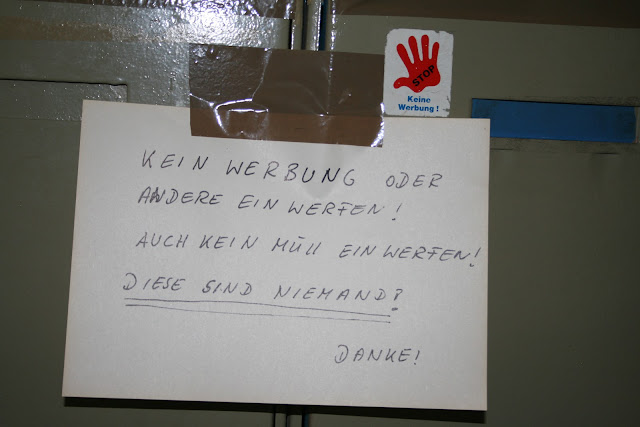 STOP
Keine
Werbung!
KEIN WERBUNG ODER
ANDERE EIN WERFEN!
AUCH KEIN MÜLL EIN WERFEN!
DIESE SIND NIEMAND?
DANKE!